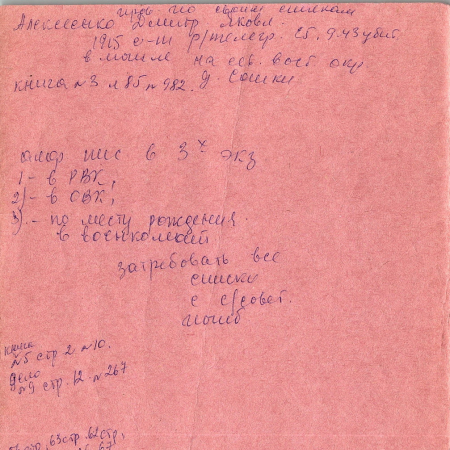 пров. по своим спискам
Алексеенко Дмитр Яковл.
1915 с-т р/телегр. 25.9.43 убит
в могиле на сев. вост окр
д. Сошки
книга №3 л 85 п 982.
офор пис в 3х экз
1)- в РВК,
2)- в ОВК,
3).- по месту рождения
в военкомат
затребовать все
списки
с с/совет.
погиб
книга
№5 стр 2 №10.
дело
№9 стр. 12 №267
стр. 63 стр. 62 стр,